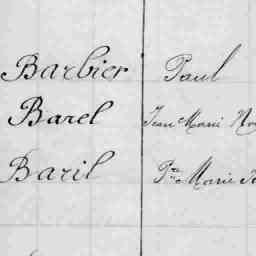 Barbier Paul
Barel Jean Marie
Baril Pre Marie